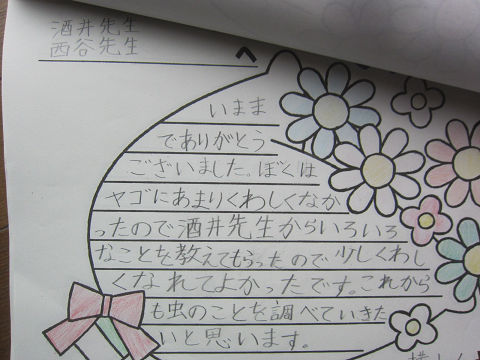 酒井先生
西谷先生
へ
いまま
でありがとう
ございました。ぼくは
ヤゴにあまりくわしくなか
ったので酒井先生からいろいろ
なことを教えてもらったので少しくわし
くなれてよかったです。これから
も虫のことを調べていきた
いと思います。